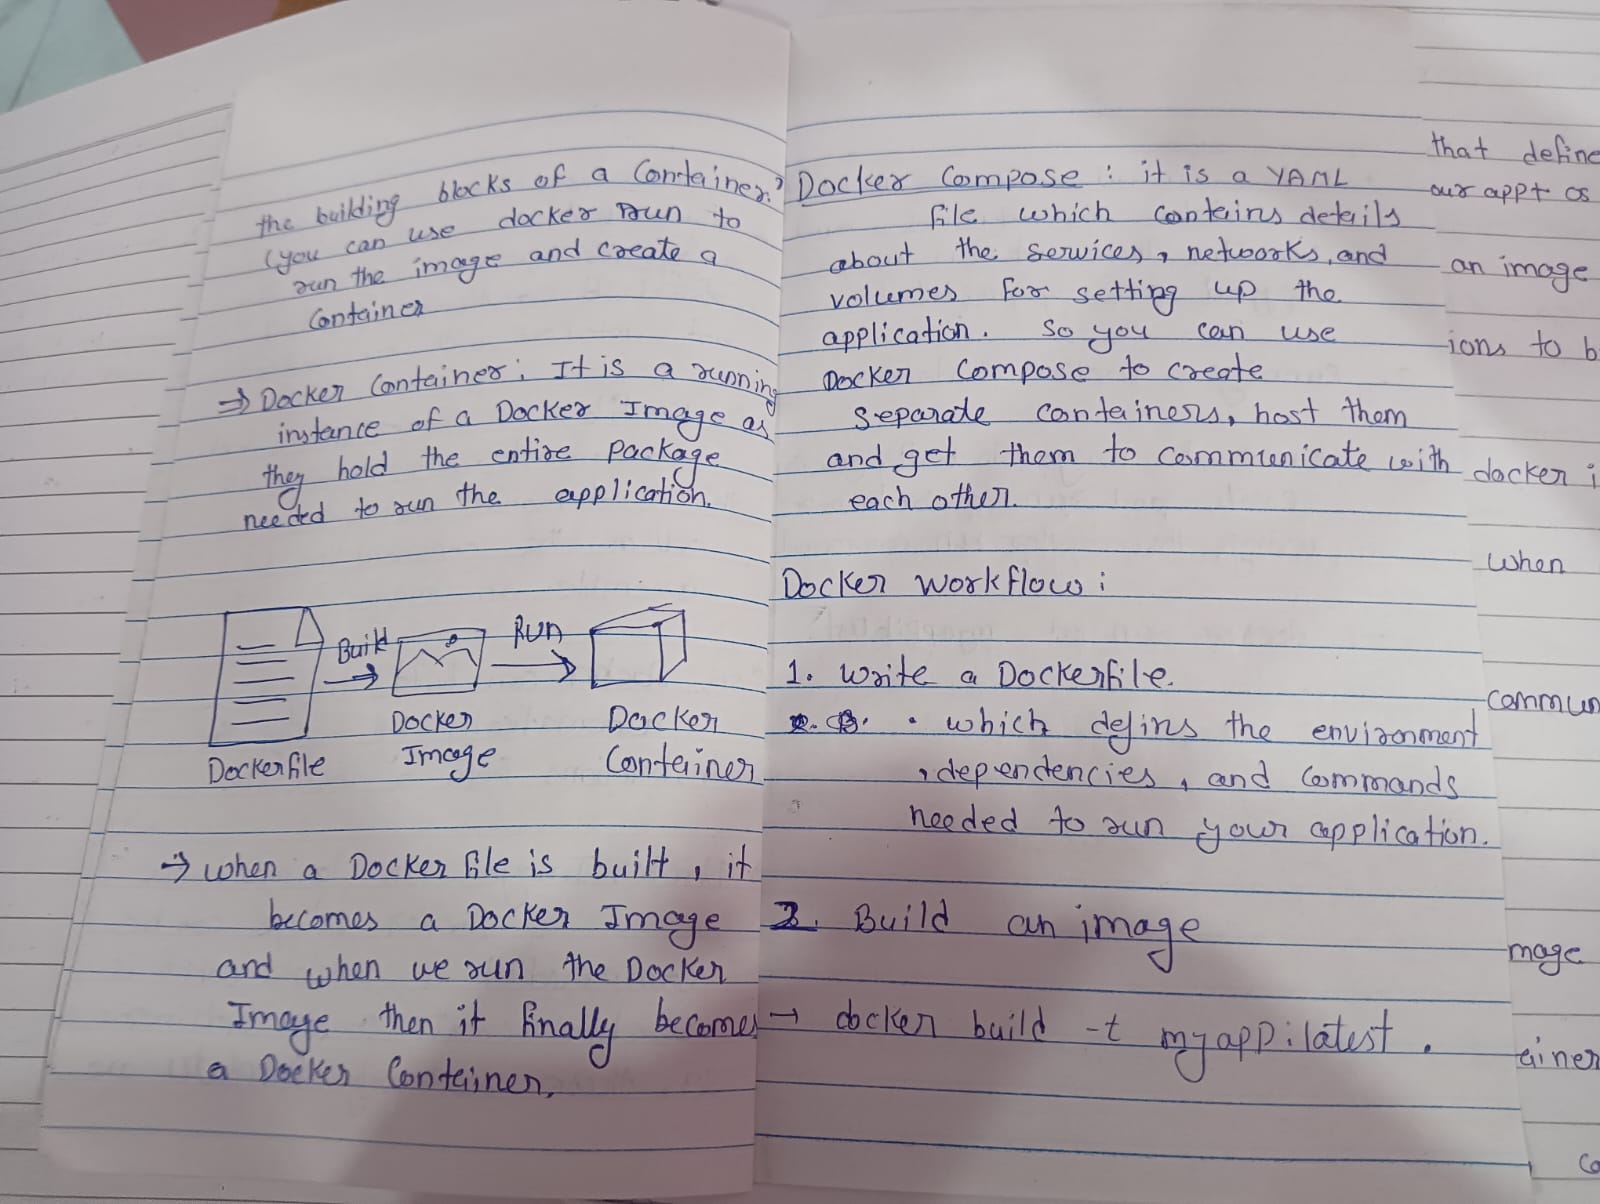 the building blocks of a Container?
(you can use docker run to
run the image and create a
Container
→ Docker Container: It is a running
instance of a Docker Image as
they hold the entire package
needed to run the application.
Build
Run
Docker
Image
Docker
Container
Dockerfile
→ when a Docker file is built, it
becomes a Docker Image
and when we run the Docker
Image then it finally becomes
a Docker Container.
Docker Compose: it is a YAML
file which contains details
about the services, networks, and
volumes for setting up the
application. So you can use
Docker Compose to create
separate containers, host them
and get them to communicate with
each other.
Docker workflow:
1. Write a Dockerfile.
• which defins the environment
, dependencies, and commands
needed to run your application.
2. Build an image
→ docker build -t myapp:latest .
that define
our app + os
an image
ions to b
docker i
when
commun
mage
ainer
co